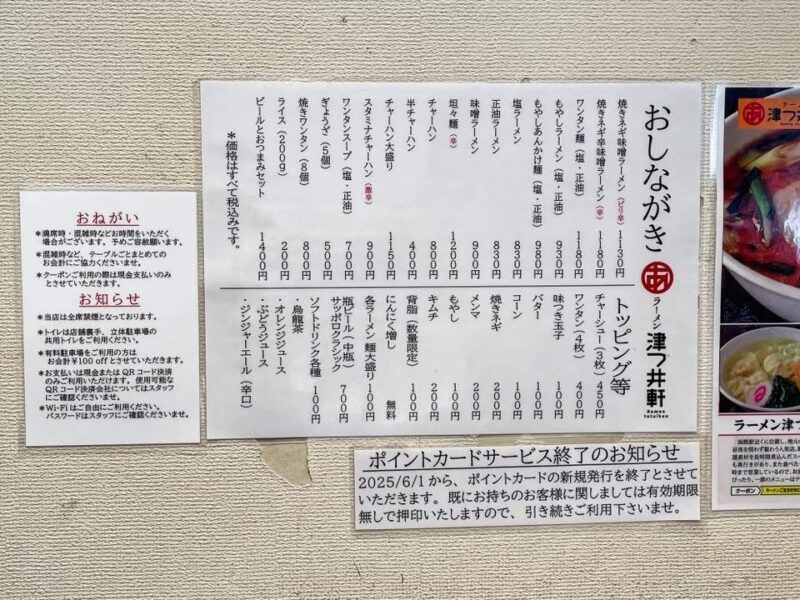 おねがい
*満席時・混雑時などお時間をいただく
場合がございます。予めご容赦願います。
*混雑時など、テーブルごとまとめての
お会計にご協力くださいませ。
*クーポンご利用の際は現金支払いのみ
とさせていただきます。
お知らせ
*当店は全席禁煙となっております。
*トイレは店舗裏手、立体駐車場の
共用トイレをご利用ください。
*有料駐車場をご利用の方は
お会計¥100 offとさせていただきます。
*お支払いは現金またはQRコード決済
のみご利用いただけます。使用可能な
QRコード決済会社についてはスタッフ
にご確認くださいませ。
*Wi-Fiはご自由にご利用ください。
パスワードはスタッフにご確認くださいませ。
おしながき
あ ラーメン 津つ井軒
Ramen
tsutsuiken
焼きネギ味噌ラーメン(ピリ辛) 1130円
焼きネギ辛味噌ラーメン(辛) 1180円
ワンタン麺(塩・正油) 1180円
もやしラーメン(塩・正油) 930円
もやしあんかけ麺(塩・正油) 980円
塩ラーメン 830円
正油ラーメン 830円
味噌ラーメン 900円
坦々麺(辛) 1200円
チャーハン 800円
半チャーハン 400円
チャーハン大盛り 1150円
スタミナチャーハン(激辛) 900円
ワンタンスープ(塩・正油) 700円
ぎょうざ(5個) 500円
焼きワンタン(8個) 800円
ライス(200g) 200円
ビールとおつまみセット 1400円
*価格はすべて税込みです。
トッピング等
チャーシュー(3枚) 450円
ワンタン(4枚) 400円
味つき玉子 100円
バター 100円
コーン 200円
焼きネギ 200円
メンマ 200円
もやし 100円
キムチ 200円
背脂(数量限定) 100円
にんにく増し 無料
各ラーメン麺大盛り 100円
瓶ビール(中瓶)
サッポロクラシック 700円
ソフトドリンク各種 100円
・烏龍茶
・オレンジジュース
・ぶどうジュース
・ジンジャーエール(辛口)
ポイントカードサービス終了のお知らせ
2025/6/1から、ポイントカードの新規発行を終了とさせて
いただきます。既にお持ちのお客様に関しましては有効期限
無しで押印いたしますので、引き続きご利用下さいませ。
あ 津つ井
ラーメン津つ
クーポン